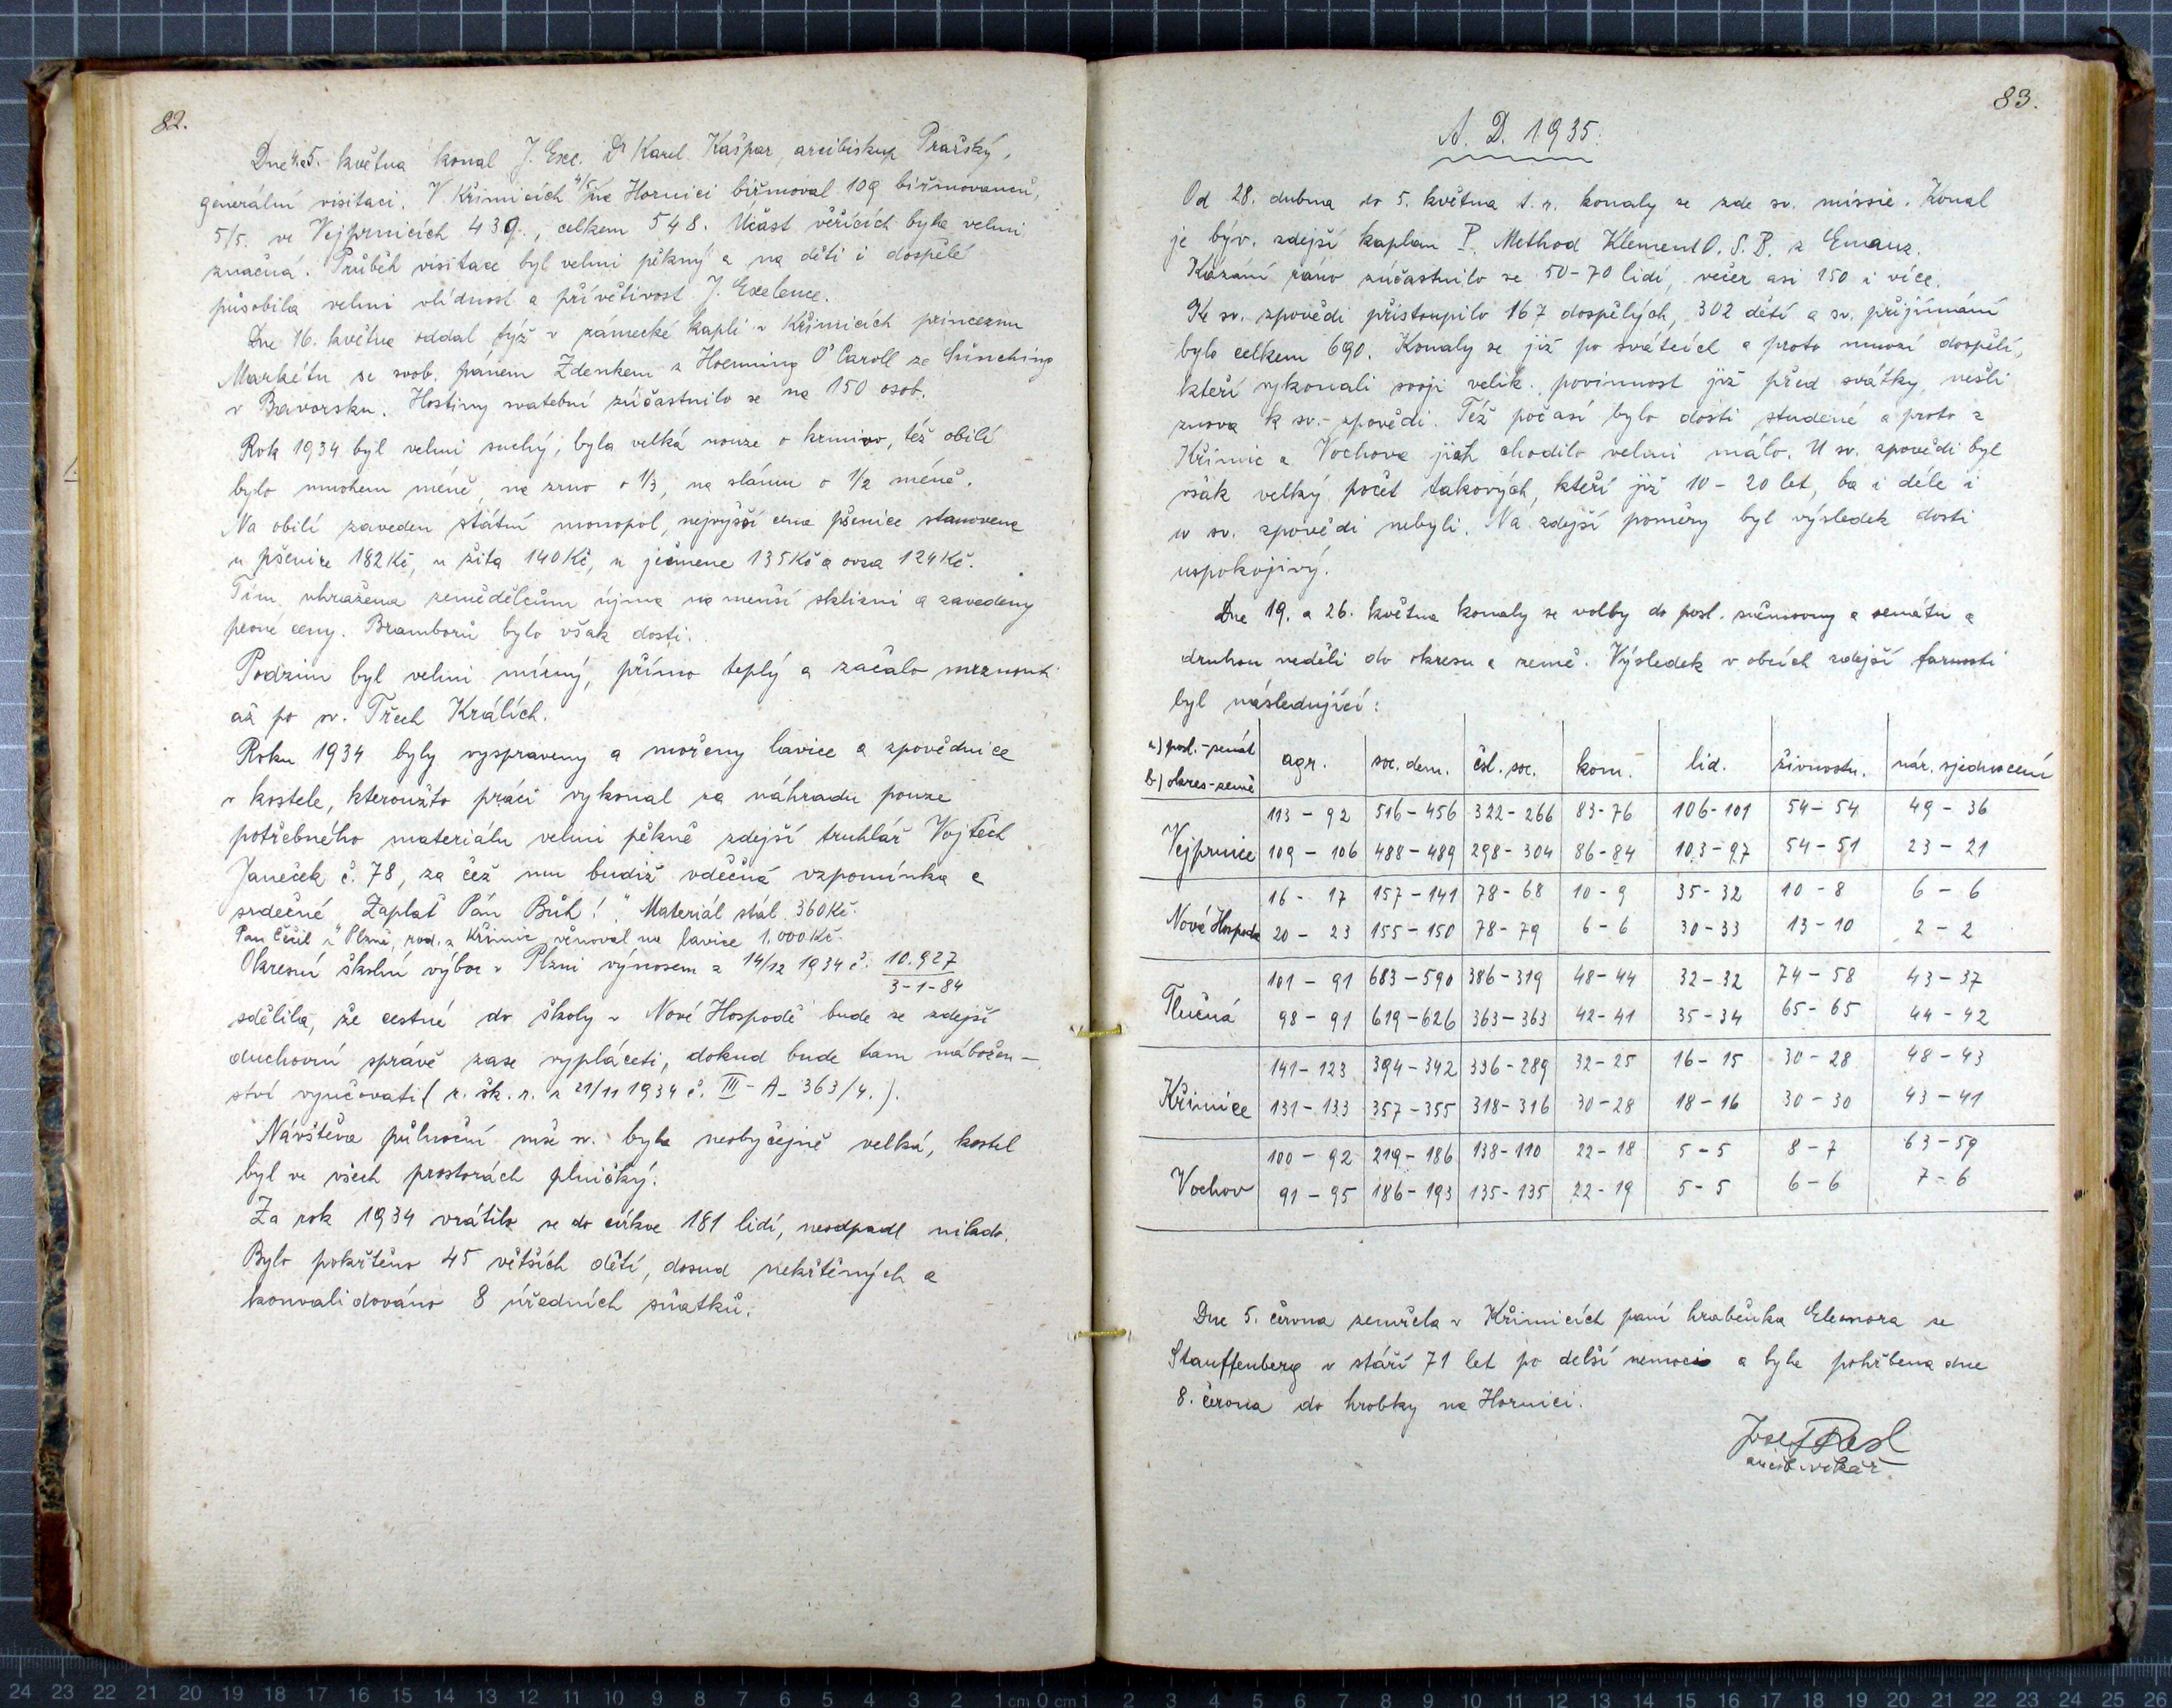 82.
Dne 4. a 5. května konal J. Exc. Dr Karel Kašpar, arcibiskup Pražský,
generální visitaci. V Křimicích 4/5 na Hornici biřmoval 109 biřmovanců,
5/5. ve Vejprnicích 439., celkem 548. Účast věřících byla velmi
značná. Průběh visitace byl velmi pěkný a na děti i dospělé
působila velmi vlídnost a přívětivost J. Excelence.
Dne 16. května oddal týž v zámecké kapli v Křimicích princeznu
Markétu se svob. pánem Zdenkem z Hoenning O'Caroll ze Sünching
v Bavorsku. Hostiny svatební zúčastnilo se na 150 osob.
Rok 1934 byl velmi suchý, byla velká nouze o krmivo, též obilí
bylo mnohem méně, na zrno o 1/3, na slámu o 1/2 méně.
Na obilí zaveden státní monopol, nejvyšší cena pšenice stanovena
u pšenice 182 Kč, u žita 140 Kč, u ječmene 135 Kč a ovsa 124 Kč.
Tím uhražena zemědělcům újma na menší sklizni a zavedeny
pevné ceny. Bramborů bylo však dosti.
Podzim byl velmi mírný, přímo teplý a začalo mrznouti
až po sv. Třech Králích.
Roku 1934 byly vyspraveny a mořeny lavice a zpovědnice
v kostele, kteroužto práci vykonal za náhradu pouze
potřebného materiálu velmi pěkně zdejší truhlář Vojtěch
Janeček č. 78, za čež mu budiž vděčná vzpomínka a
srdečné „Zaplať Pán Bůh!" Materiál stál 360 Kč.
Pan Čečil z Plzně, rod. z Křimic věnoval na lavice 1.000 Kč.
Okresní školní výbor v Plzni výnosem z 14/12 1934 č. 10.927
3-1-84
sdělila, že cestné do školy v Nové Hospodě bude se zdejší
duchovní správě zase vypláceti, dokud bude tam nábožen-
ství vyučovati (z. šk. r. z 21/11 1934 č. III - A - 363/4.).
Návštěva půlnoční mše sv. byla neobyčejně velká, kostel
byl ve všech prostorách plničký.
Za rok 1934 vrátilo se do církve 181 lidí, neodpadl nikdo.
Bylo pokřtěno 45 větších dětí, dosud nekřtěných a
konvalidováno 8 úředních sňatků.
83.
A. D. 1935.
Od 28. dubna do 5. května t. r. konaly se zde sv. missie. Konal
je býv. zdejší kaplan P. Method Klement O. S. B. z Emauz.
Kázání ráno zúčastnilo se 50-70 lidí, večer asi 150 i více.
Ke sv. zpovědi přistoupilo 167 dospělých, 302 dětí a sv. přijímání
bylo celkem 690. Konaly se již po svátcích a proto mnozí dospělí,
kteří vykonali svoji velik. povinnost již před svátky, nešli
znova k sv. zpovědi. Též počasí bylo dosti studené a proto z
Křimic a Vochova jich chodilo velmi málo. U sv. zpovědi byl
však velký počet takových, kteří již 10 - 20 let, ba i déle i
u sv. zpovědi nebyli. Na zdejší poměry byl výsledek dosti
uspokojivý.
Dne 19. a 26. května konaly se volby do posl. sněmovny a senátu a
druhou neděli do okresu a země. Výsledek v obcích zdejší farnosti
byl následující:
a) posl.-senát agr. soc. dem. čsl. soc. kom. lid. živnostn. nár. sjednocení
b) okres-země
113 - 92 516 - 456 322 - 266 83 - 76 106 - 101 54 - 54 49 - 36
Vejprnice 109 - 106 488 - 489 298 - 304 86 - 84 103 - 97 54 - 51 23 - 21
16 - 17 157 - 141 78 - 68 10 - 9 35 - 32 10 - 8 6 - 6
Nová Hospoda 20 - 23 155 - 150 78 - 79 6 - 6 30 - 33 13 - 10 2 - 2
101 - 91 683 - 590 386 - 319 48 - 44 32 - 32 74 - 58 43 - 37
Tlučná 98 - 91 619 - 626 363 - 363 42 - 41 35 - 34 65 - 65 44 - 42
141 - 123 394 - 342 336 - 289 32 - 25 16 - 15 30 - 28 48 - 43
Křimice 131 - 133 357 - 355 318 - 316 30 - 28 18 - 16 30 - 30 43 - 41
100 - 92 219 - 186 138 - 110 22 - 18 5 - 5 8 - 7 63 - 59
Vochov 91 - 95 186 - 193 135 - 135 22 - 19 5 - 5 6 - 6 7 - 6
Dne 5. června zemřela v Křimicích paní hraběnka Eleonora ze
Stauffenberg v stáří 71 let po delší nemoci a byla pohřbena dne
8. června do hrobky na Hornici.
Josef Resl
arcib. vikář.
24 23 22 21 20 19 18 17 16 15 14 13 12 11 10 9 8 7 6 5 4 3 2 1 cm 0 cm 1 2 3 4 5 6 7 8 9 10 11 12 13 14 15 16 17 18 19 20 21 22 23 24 25 26